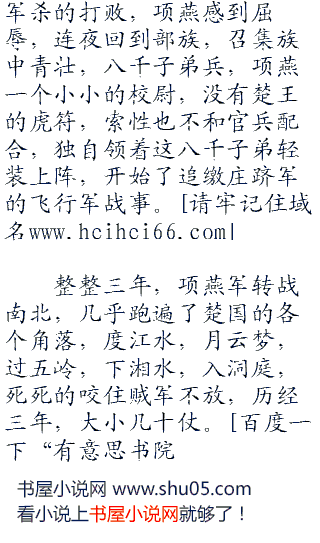 军杀的打败，项燕感到屈
辱，连夜回到部族，召集族
中青壮，八千子弟兵，项燕
一个小小的校尉，没有楚王
的虎符，索性也不和官兵配
合，独自领着这八千子弟轻
装上阵，开始了追缴庄蹻军
的飞行军战事。[请牢记住域
名www.hcihci66.com|
整整三年，项燕军转战
南北，几乎跑遍了楚国的各
个角落，度江水，月云梦，
过五岭，下湘水，入洞庭，
死死的咬住贼军不放，历经
三年，大小几十仗。[百度一
下“有意思书院
书屋小说网 www.shu05.com
看小说上书屋小说网就够了！